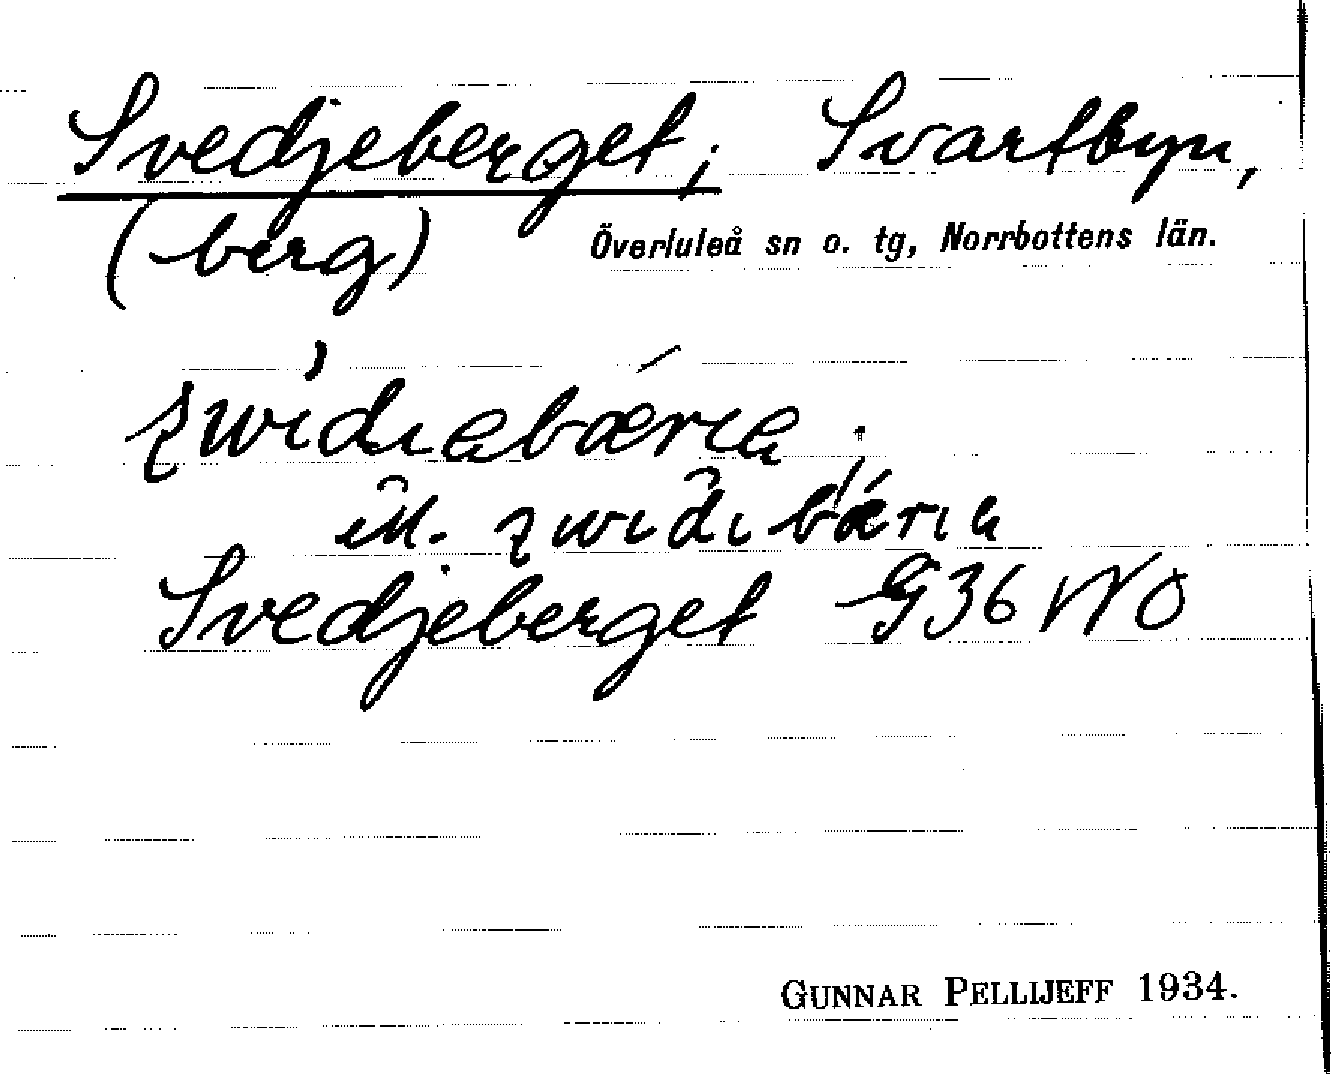 Svedjeberget; Svartbyn,
(berg) Överluleå sn o. tg, Norrbottens län.
Svedjeberget G36 NO
GUNNAR PELLIJEFF 1934.